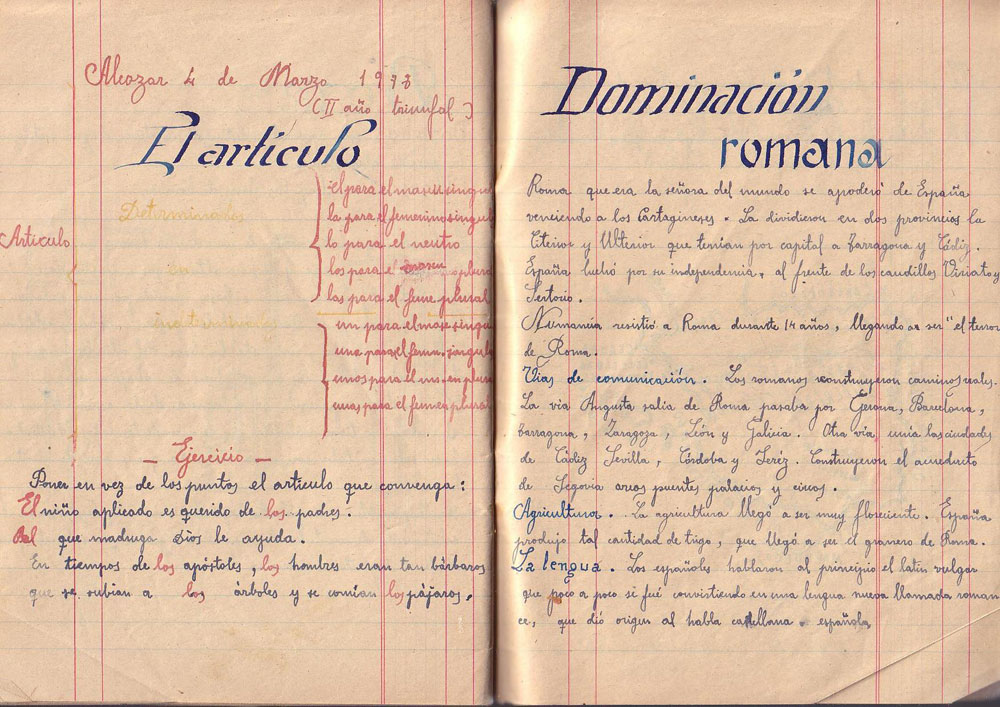 Alcazar 4 de Marzo 1938
(II año triunfal)
El artículo
Artículo
Determinados
el para el mascu. singul
la para el femenino singul
lo para el neutro
los para el mascu plural
las para el feme plural
indeterminado
un para el mas. singu
una para el femn. singula
unos para el ms. en plura
unas para el femen plural
— Ejercicio —
Poner en vez de los puntos el artículo que convenga:
El niño aplicado es querido de los padres.
Al que madruga Dios le ayuda.
En tiempos de los apóstoles, los hombres eran tan bárbaros
que se subian a los árboles y se comían los pájaros,
Dominación
romana
Roma que era la señora del mundo se apoderó de España
venciendo a los Cartagineses. La dividieron en dos provincias la
Citerior y Ulterior que tenían por capital a Tarragona y Cádiz.
España luchó por su independencia, al frente de los caudillos Viriato y
Sertorio.
Numania resistió a Roma durante 14 años, llegando a ser "el terror
de Roma.
Vias de comunicación. Los romanos construyeron caminos reales.
La via Augusta salia de Roma pasaba por Gerona, Barcelona,
Tarragona, Zaragoza, León y Galicia. Otra vía unía las ciudades
de Cádiz Sevilla, Córdoba y Jeréz. Construyeron el acueducto
de Segovia arcos puentes palacios y circos.
Agricultura. La agricultura llegó a ser muy floreciente. España
produjo tal cantidad de trigo, que llegó a ser el granero de Roma.
La lengua. Los españoles hablaron al principio el latin vulgar
que poco a poco si fué convistiendo en una lengua nueva llamada roman
ce, que dió origen al habla castellana. española